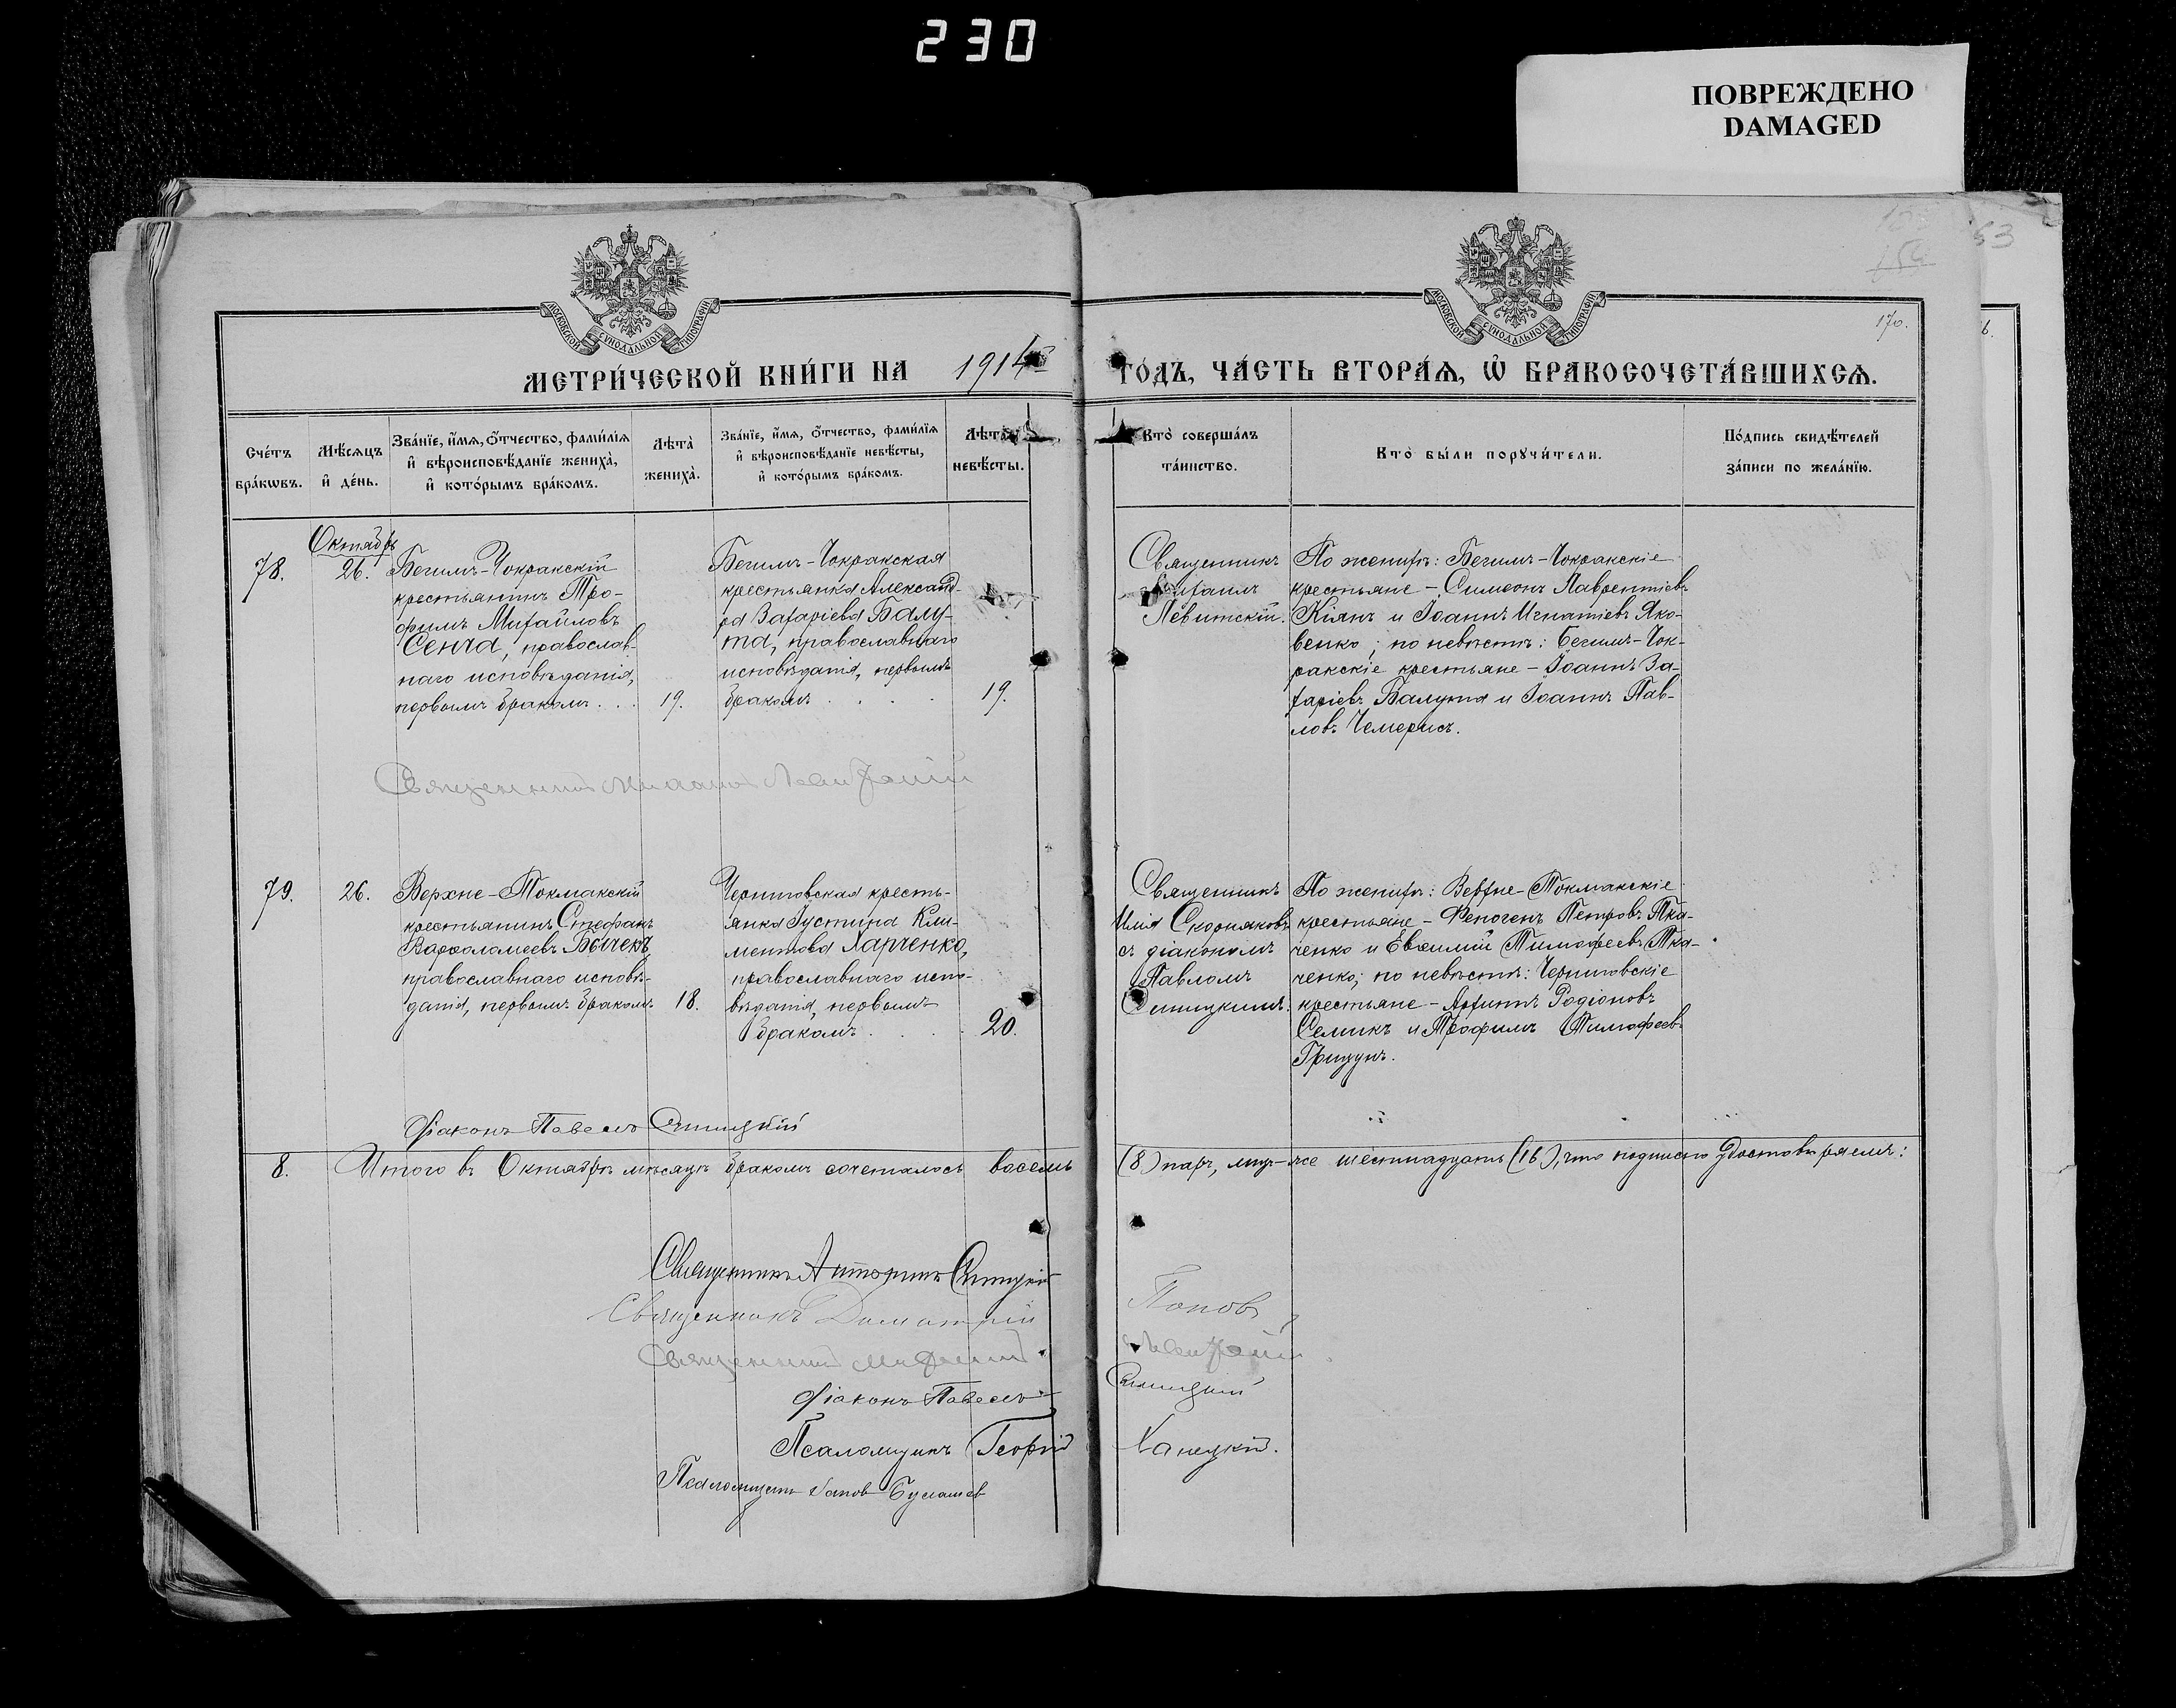 230
ПОВРЕЖДЕНО
DAMAGED
53
170.
МОСКОВСКОЙ СѴНОДАЛЬНОЙ ТИПОГРАФІИ
МОСКОВСКОЙ СѴНОДАЛЬНОЙ ТИПОГРАФІИ
МЕТРИ́ЧЕСКОЙ КНИ́ГИ НА 1914 ГО́ДЪ, ЧА́СТЬ ВТОРА́Ѧ, Ѡ҆ БРАКОСОЧЕТА́ВШИХСѦ.
Сче́тъ бра́кѡвъ.
Мѣ́сѧцъ и҆ де́нь.
Зва́нїе, и҆́мѧ, ѻ҆́тчество, фами́лїѧ
и҆ вѣроисповѣ́данїе жениха̀,
и҆ кото́рымъ бра́комъ.
Лѣта̀ жениха̀.
Зва́нїе, и҆́мѧ, ѻ҆́тчество, фами́лїѧ
и҆ вѣроисповѣ́данїе невѣ́сты,
и҆ кото́рымъ бра́комъ.
Лѣта̀ невѣ́сты.
Кто̀ соверша́лъ та́инство.
Кто̀ бы́ли порꙋчи́тели.
По́дпись свидѣ́телей за́писи по жела́нїю.
Октябрь
78.
26.
Бегимъ-Чокракскій
крестьянинъ Тро-
фимъ Михайловъ
Сенча, православ-
наго исповѣданія,
первымъ бракомъ . . .
19.
Бегимъ-Чокракская
крестьянка Александ-
ра Захаріева Балу-
та, православнаго
исповѣданія, первымъ
бракомъ . . . .
19.
Священникъ
Михаилъ
Левитскій.
По женихѣ: Бегимъ-Чокракскіе
крестьяне - Симеонъ Лаврентіевъ
Кіянъ и Іоаннъ Игнатіевъ Яко-
венко; по невѣстѣ: Бегимъ-Чок-
ракскіе крестьяне - Іоаннъ За-
харіевъ Балута и Іоаннъ Пав-
ловъ Чемерисъ.
Священникъ Михаилъ Левитскій
79.
26.
Верхне-Токмакскій
крестьянинъ Стефанъ
Варфоломеевъ Бѣлченъ,
православнаго исповѣ-
данія, первымъ бракомъ.
18.
Черниговская кресть-
янка Іустина Кли-
ментова Харченко,
православнаго испо-
вѣданія, первымъ
бракомъ . . . .
20.
Священникъ
Илія Скорняковъ
съ діакономъ
Павломъ
Синицкимъ.
По женихѣ: Верхне-Токмакскіе
крестьяне - Феногенъ Петровъ Тка-
ченко и Евфимій Тимофеевъ Тка-
ченко; по невѣстѣ: Черниговскіе
крестьяне - Архипъ Родіоновъ
Семикъ и Трофимъ Тимофеевъ
Грицунъ.
Діаконъ Павелъ Синицкій
8. Итого въ Октябрѣ мѣсяцѣ бракомъ сочеталось восемь (8) паръ, лицъ-же шестнадцать (16), что подписью удостовѣряемъ:
Священникъ Антонинъ Синицкій
Священникъ Димитрій Попов
Священникъ Михаилъ Левитскій
Діаконъ Павелъ Синицкій
Псаломщикъ Георгій Ханецкій.
Псаломщикъ